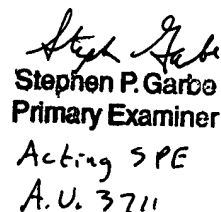 Steph Garbe
Stephen P. Garbe
Primary Examiner
Acting SPE
A.U. 3711